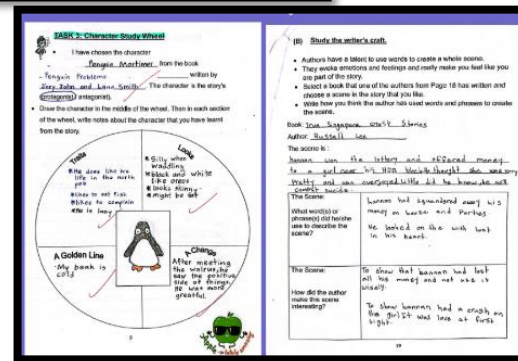 TASK 3: Character Study Wheel
I have chosen the character
Penguin Mortimer from the book
- Penguin Problems written by
Jory John and Lane Smith. The character is the story's
(protagonist/ antagonist).
Draw the character in the middle of the wheel. Then in each section
of the wheel, write notes about the character that you have learnt
from the story.
Traits
life in the north
pole
likes to eat fish
likes to complain
He is lazy
Looks
Silly when
waddling
black and white
like oreos
looks skinny
might be
A Golden Line
My beak is
cold
A Change
After meeting
the walrus, he
saw the positive
side of things.
He was more
greatful.
(B) Study the writer's craft.
Authors have a talent to use words to create a whole scene.
They evoke emotions and feelings and really make you feel like you
are part of the story.
Select a book that one of the authors from Page 18 has written and
choose a scene in the story that you like.
Write how you think the author has used words and phrases to create
the scene.
Book: True Singapore Ghost Stories
Author: Russell Lee
The scene is :
hannan won the lottery and offered money
to a girl near his HDB block. He thought she was very
pretty and was overjoyed. Little did he know, she will
commit suicide.
The Scene:
What word(s) or
phrase(s) did he/she
use to describe the
scene?
hannan had squandered away his
money on booze and Parties
He looked on the with lust
in his heart.
The Scene:
How did the author
make this scene
interesting?
To show that hannan had lost
all his money and not use it
wisely.
To show hannan had a crush on
the girl. It was love at first
sight.
19